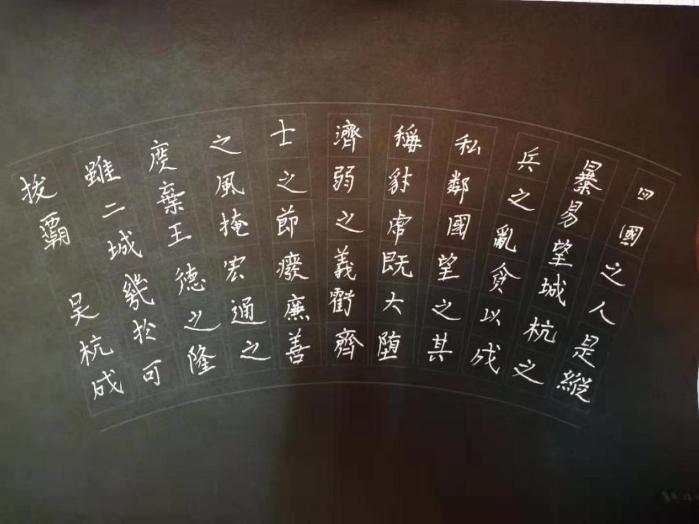 四國之人是縱
暴易望城杭之
兵之亂貪以成
私鄰國望之其
稱豺虎既大墮
濟弱之義霸齊
士之節癈廉善
之風掩宏通之
度棄王德之隆
雖二城幾於可
拔霸 吴杭成